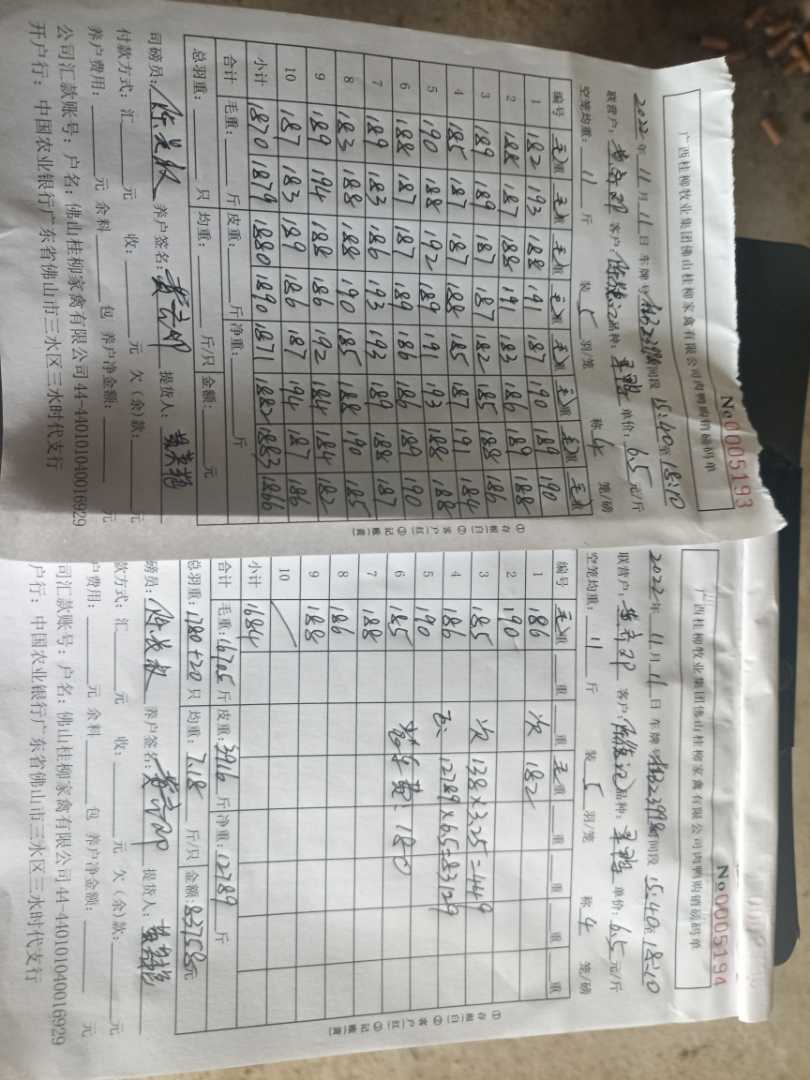 广西桂柳牧业集团佛山桂柳家禽有限公司肉鸭购销磅码单
No 0005193
2022年 11月 11日 车牌号 时间段 15:40至18:10
联营户: 客户: 品种: 单价: 6.5 元/斤
空笼均重: 11 斤 装 5 羽/笼 称 4 笼/磅
编号 毛重 毛重 毛重 毛重 毛重 毛重 毛重 毛重
1 182 193 188 191 187 190 189 190
2 188 187 188 191 183 186 189 188
3 189 189 187 187 182 185 188 186
4 185 187 187 188 185 187 191 184
5 190 188 192 189 191 193 188 188
6 188 187 187 189 186 186 189 190
7 189 183 186 193 193 189 188 187
8 183 188 188 190 185 188 190 185
9 189 194 188 186 192 184 184 182
10 187 183 189 186 187 194 187 186
小计 1870 1879 1880 1890 1871 1882 1883 1866
合计 毛重: 斤 皮重: 斤 净重: 斤
总羽重: 只 均重: 斤/只 金额: 元
司磅员: 养户签名: 提货人:
付款方式: 汇 元 收: 元 欠(余)款: 元
养户费用: 元 余料 包 养户净金额: 元
公司汇款账号: 户名: 佛山桂柳家禽有限公司 44-440101040016929
开户行: 中国农业银行广东省佛山市三水区三水时代支行
①存根(白) ②客户(红) ③记账(黄)
广西桂柳牧业集团佛山桂柳家禽有限公司肉鸭购销磅码单
No 0005194
2022年 11月 11日 车牌号 时间段 15:40至18:10
联营户: 客户: 品种: 单价: 6.5 元/斤
空笼均重: 11 斤 装 5 羽/笼 称 4 笼/磅
编号 毛重 重 毛重 重 重 重 重
1 186 次 182
2 190
3 185 次 138×3.25=449
4 186 12789×6.5=83129
5 190
6 185 费: 180
7 188
8 186
9 188
10
小计 1684
合计 毛重: 16705 斤 皮重: 3916 斤 净重: 12789 斤
总羽重: 1780+20 只 均重: 7.18 斤/只 金额: 83758元
磅员: 养户签名: 提货人:
款方式: 汇 元 收: 元 欠(余)款: 元
户费用: 元 余料 包 养户净金额: 元
司汇款账号: 户名: 佛山桂柳家禽有限公司 44-440101040016929
户行: 中国农业银行广东省佛山市三水区三水时代支行
①存根(白) ②客户(红) ③记账(黄)